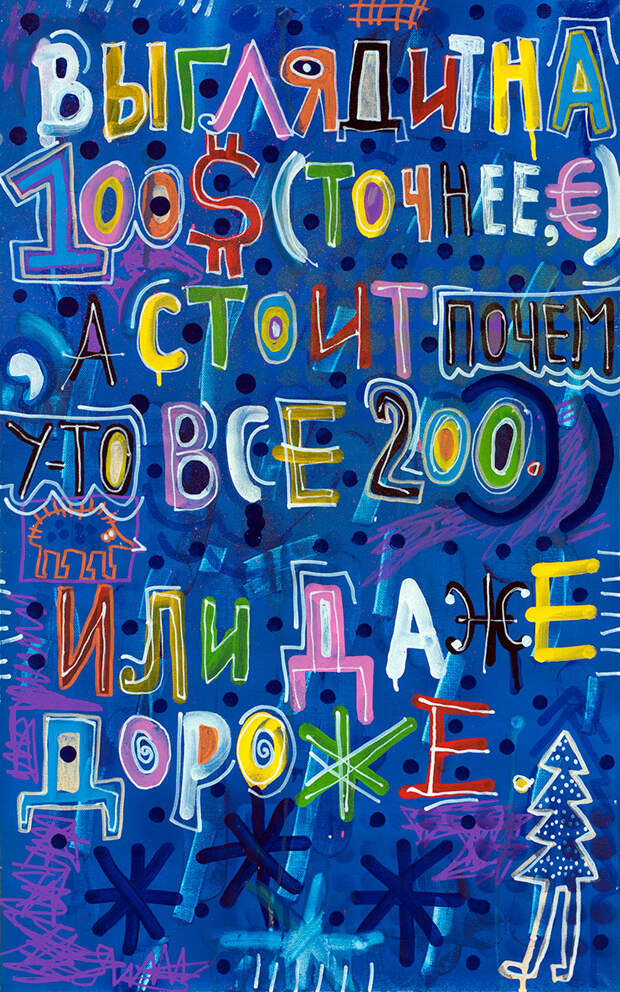 ВЫГЛЯДИТ НА
100$ (ТОЧНЕЕ, €)
, А СТОИТ ПОЧЕМ
У-ТО ВСЕ 200.)
ИЛИ ДАЖЕ
ДОРОЖЕ.